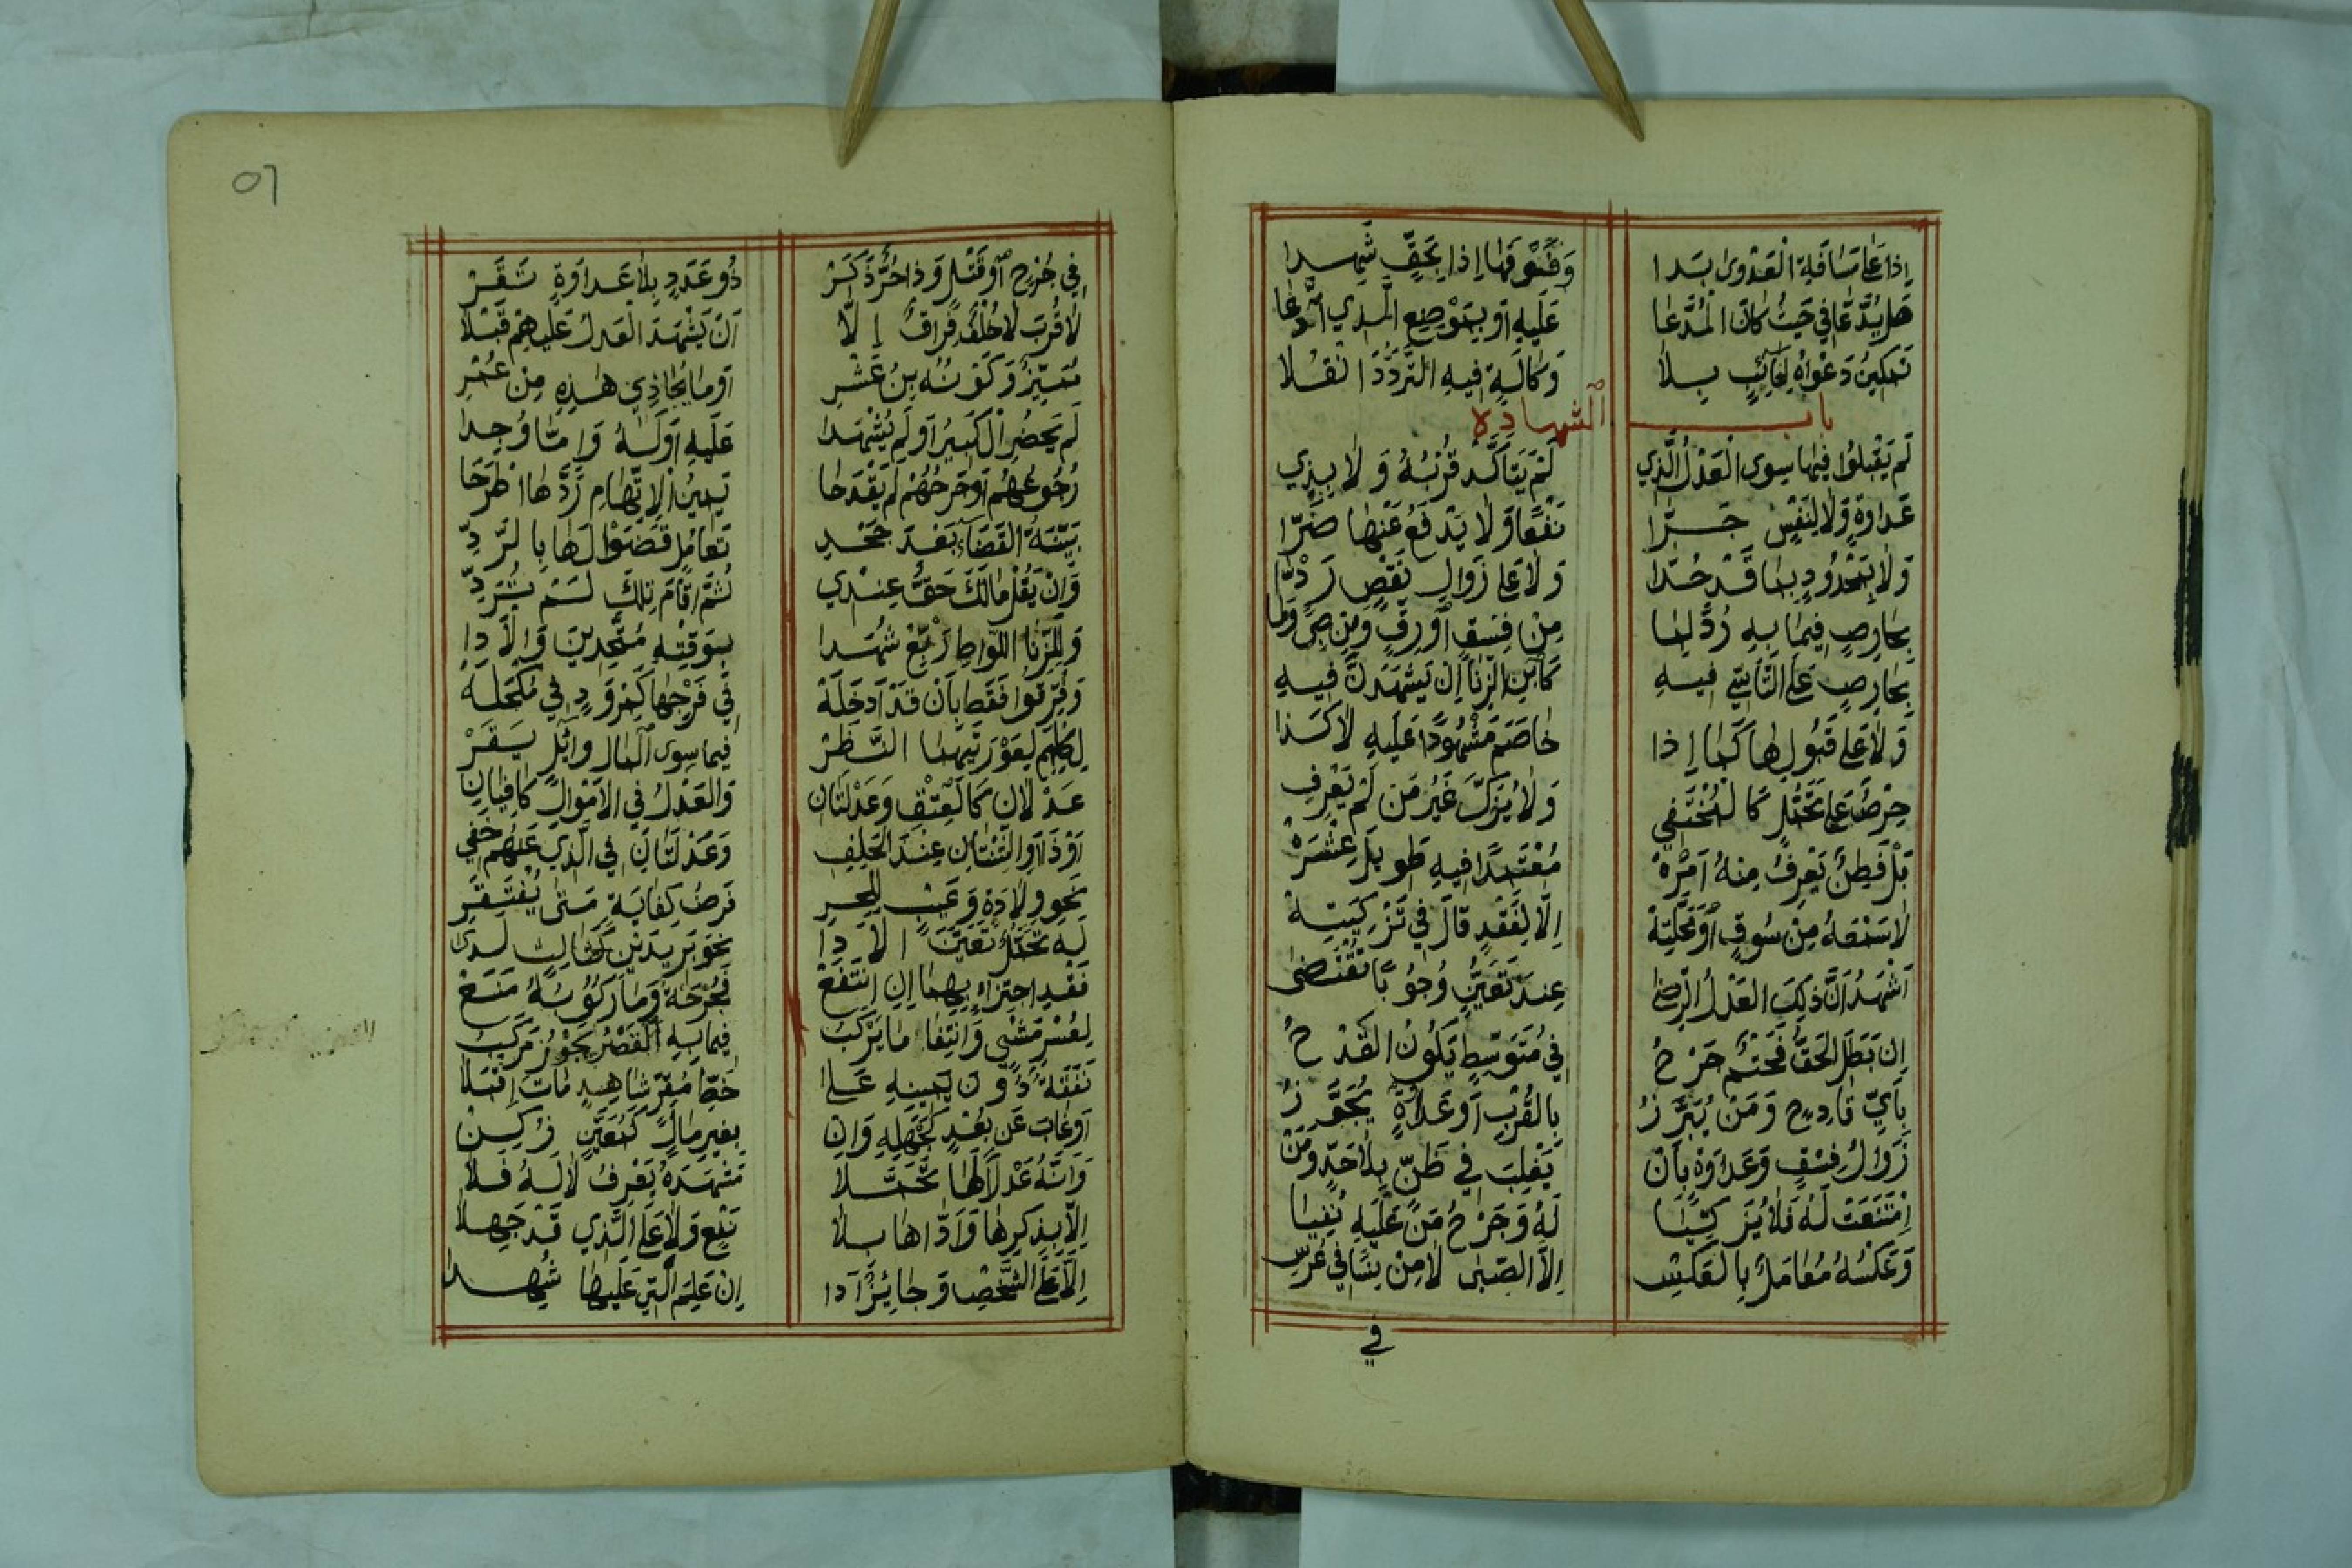 إذا على مسافة العدوى بدا وفوقها إذا بحق شهدا
هل يدعى في حيث كان المدعا عليه أو بموضع الذي ادعا
تمكين دعواه لغائب بلا وكالة فيه التردد انقلا
باب الشهادة
لم يقبلوا فيها سوى العدل الذي لم يتأكد قربه ولا بذي
عداوة ولا لنفس جرا نفعا ولا يدفع عنها ضرا
ولا بمحدود بما قد حدا ولا على زوال نقص ردا
بحارص فيما به رد لما من فسق أو رق ومن حرص وما
بحارص على التأسي فيه كابن الزنا إن يشهدن فيه
ولا على قبولها كما إذا خاصم مشهودا عليه لا كذا
حرص على تحمل كالمختفي ولا يزك غير من لم يعرف
بل فطن يعرف منه أمره معتمدا فيه طويل عشره
لا سمعه من سوق أو محلته إلا لفقد قال في تزكيته
أشهد أن ذلك العدل الرضى عند تعين وجوبا تقتضى
إن بطل الحق فحتم جرح في متوسط يكون القدح
بأي قادح ومن يبرز بالقرب أو عداوة يجوز
زوال فسق وعداوة بأن يغلب في ظن بلا حد ومن
امتنعت له فلا يزكيا له وجرح من عليه نفيا
وعكسه معامل بالعكس إلا الصبى لا من بنسا في عرس
في
٥٦
في جرح أو قتل وذا حر ذكر ذو عدد بلا عداوة تقر
لا قرب لا خلف فراق إلا أن يشهد العدل عليهم قبلا
مميز وكونه بن عشر أو ما يحاذي هذه من عمر
لم يحضر الكبير أو لم يشهدا عليه أو له وإما وجدا
رجوعهم أو جرحهم لم يقدحا يمين الاتهام ردها اطرحا
بينة القضاء بعد جحد تعامل قضوا لها بالرد
وإن يقل مالك حق عندي ثم أقام تلك لم ترد
وللزنا اللواط أربع شهدا بوقته متحدين والأدا
وفرقوا فقط بأن قد أدخله في فرجها كمرود في مكحله
لكلهم لعورتيهما النظر فيما سوى المال وآئل يقر
عدلان كالعتق وعدلتان والعدل في الأموال كافيان
أو ذا أو الثنتان عند الحلف وعدلتان في الذي عنهم خفي
نحو ولادة وعيب للحر فرض كفاية متى يفتقر
له تحمل تعين الأدا نحو بريدين كثالث لدى
فقد اجتزاء بهما إن انتفع فجرحة وما ركوبه منع
لعسر مشي وانتفا ما يركب فيما به القصر يجوز مركب
نفقة دون يمينه على خط مقر شاهد مات اقبلا
أو غاب عن بعد كجهله وإن بغير مال كمعين زكن
وأنه عدلا لها تحملا مشهده يعرف لا له فلا
إلا بذكرها وأداها بلا نفع ولا على الذي قد جهلا
إلا على الشخص وجائز أدا إن علم التي عليها شهدا